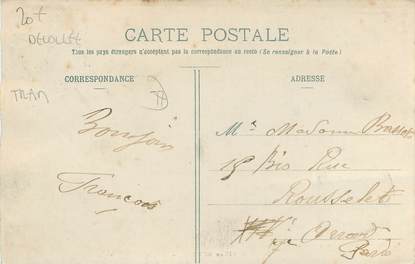 20+
DECOLLÉE
CARTE POSTALE
Tous les pays étrangers n'acceptent pas la correspondance au recto (Se renseigner à la Poste)
CORRESPONDANCE
ADRESSE
TRAM
Bonjour
François
Mr Madame
15 Bis Rue
Rousselet
Paris